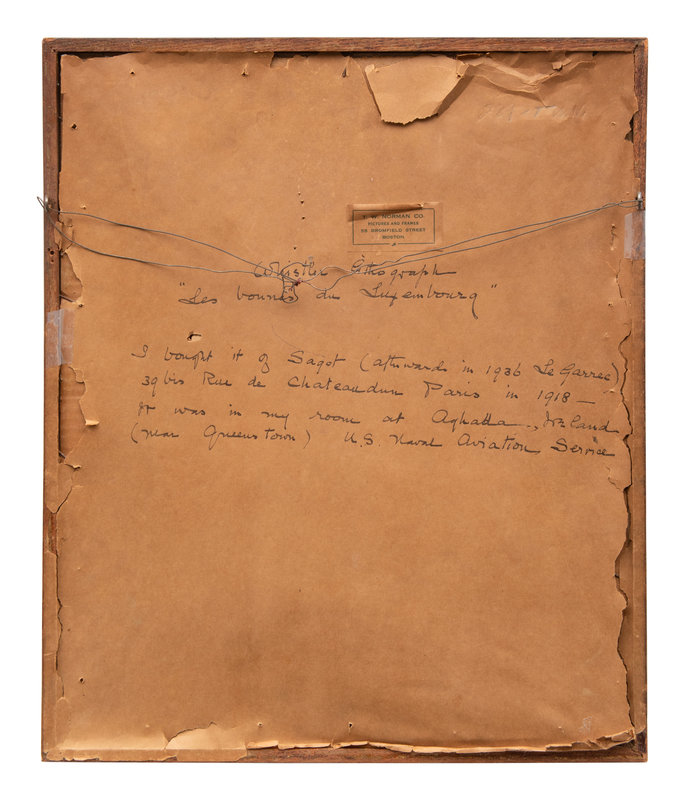 T. W. NORMAN CO.
PICTURES AND FRAMES
55 BROMFIELD STREET
BOSTON
Whistler Lithograph
"Les bonnes du Luxembourg"
I bought it of Sagot (afterwards in 1936 Le Garrec)
39 bis Rue de Chateaudun Paris in 1918 —
It was in my room at Aghada, Ireland
(near Queenstown) U.S. Naval Aviation Service